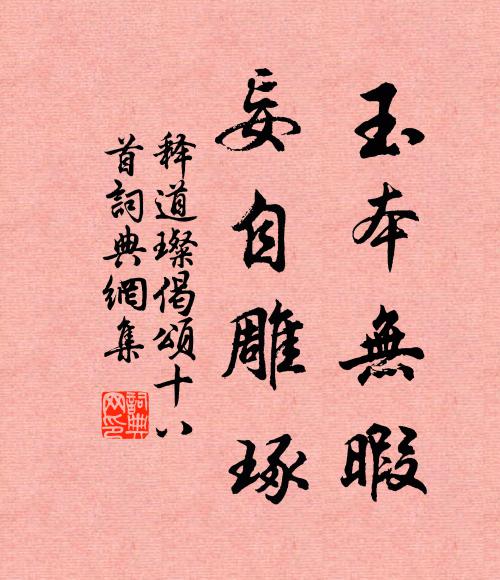 玉本無暇
妄自雕琢
释道璨偈頌十八
首詞典網集
詞典
网印